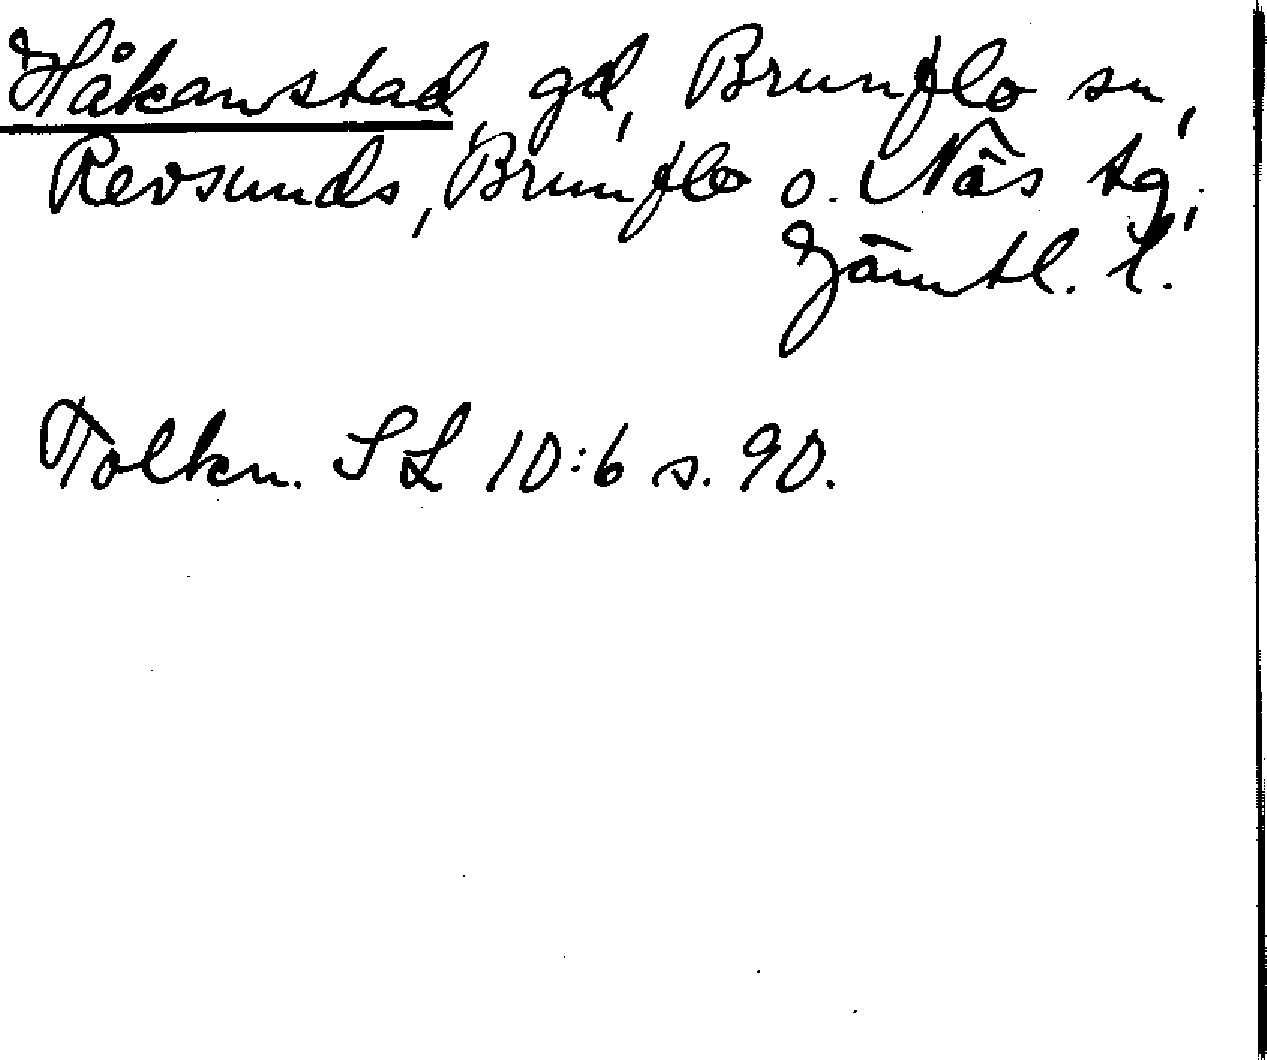 Håkanstad gd, Brunflo sn,
Revsunds, Brunflo o. Näs tg,
Jämtl. l.
Tolkn. SL 10:6 s. 90.